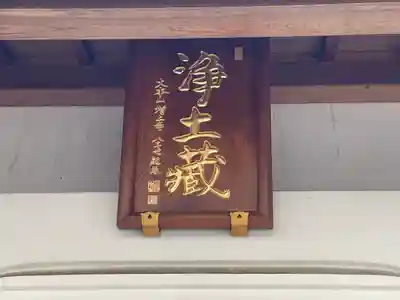 浄土蔵
大本山増上寺